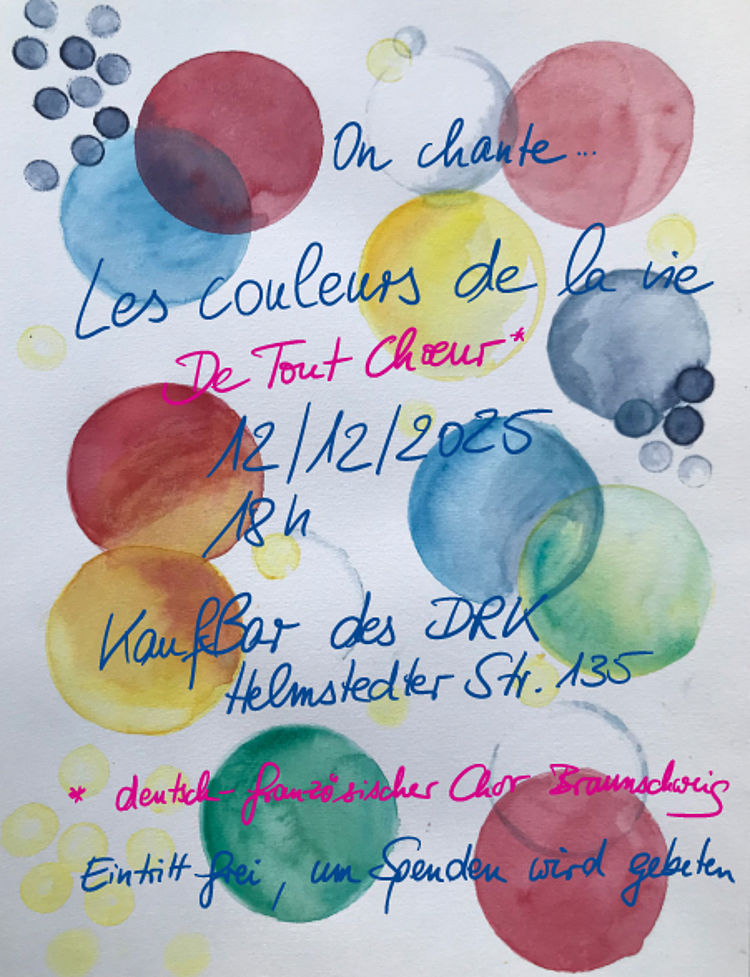 On chante...
Les couleurs de la vie
De Tout Chœur*
12/12/2025
18h
KaufBar des DRK
Helmstedter Str. 135
* deutsch-französischer Chor Braunschweig
Eintritt frei, um Spenden wird gebeten